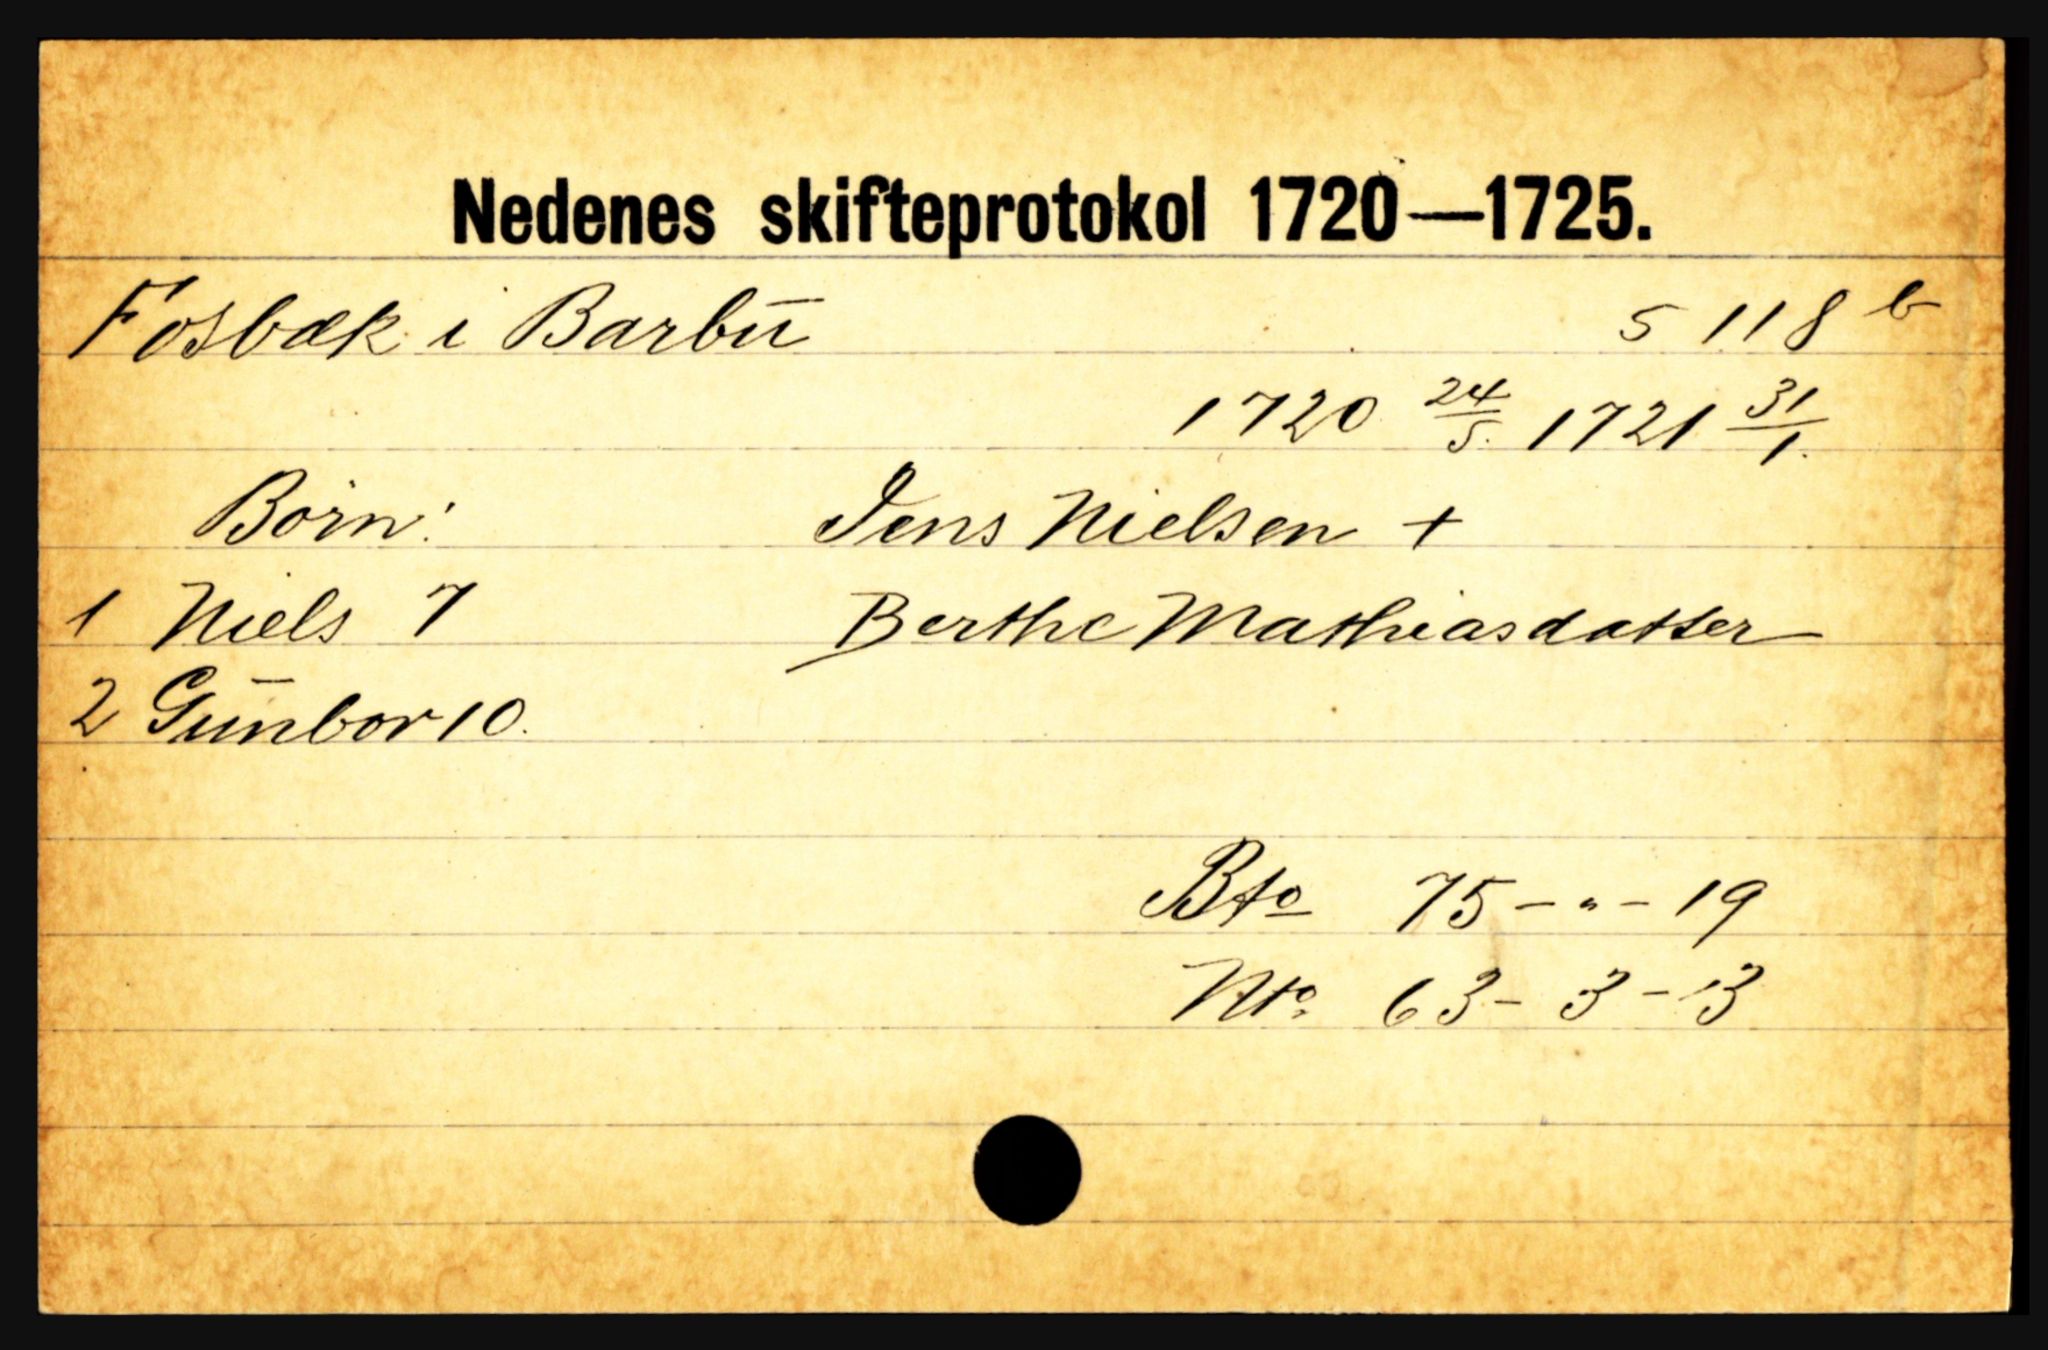 Nedenes skifteprotokol 1720—1725.
Fosbæk i Barbu 5 118 b
1720 24/5. 1721 31/1.
Börn: Jens Nielsen +
1 Niels 7 Berthe Mathiasdatter
2 Gunbor 10.
Bto 75 - " - 19
Nto. 63 - 3 - 13